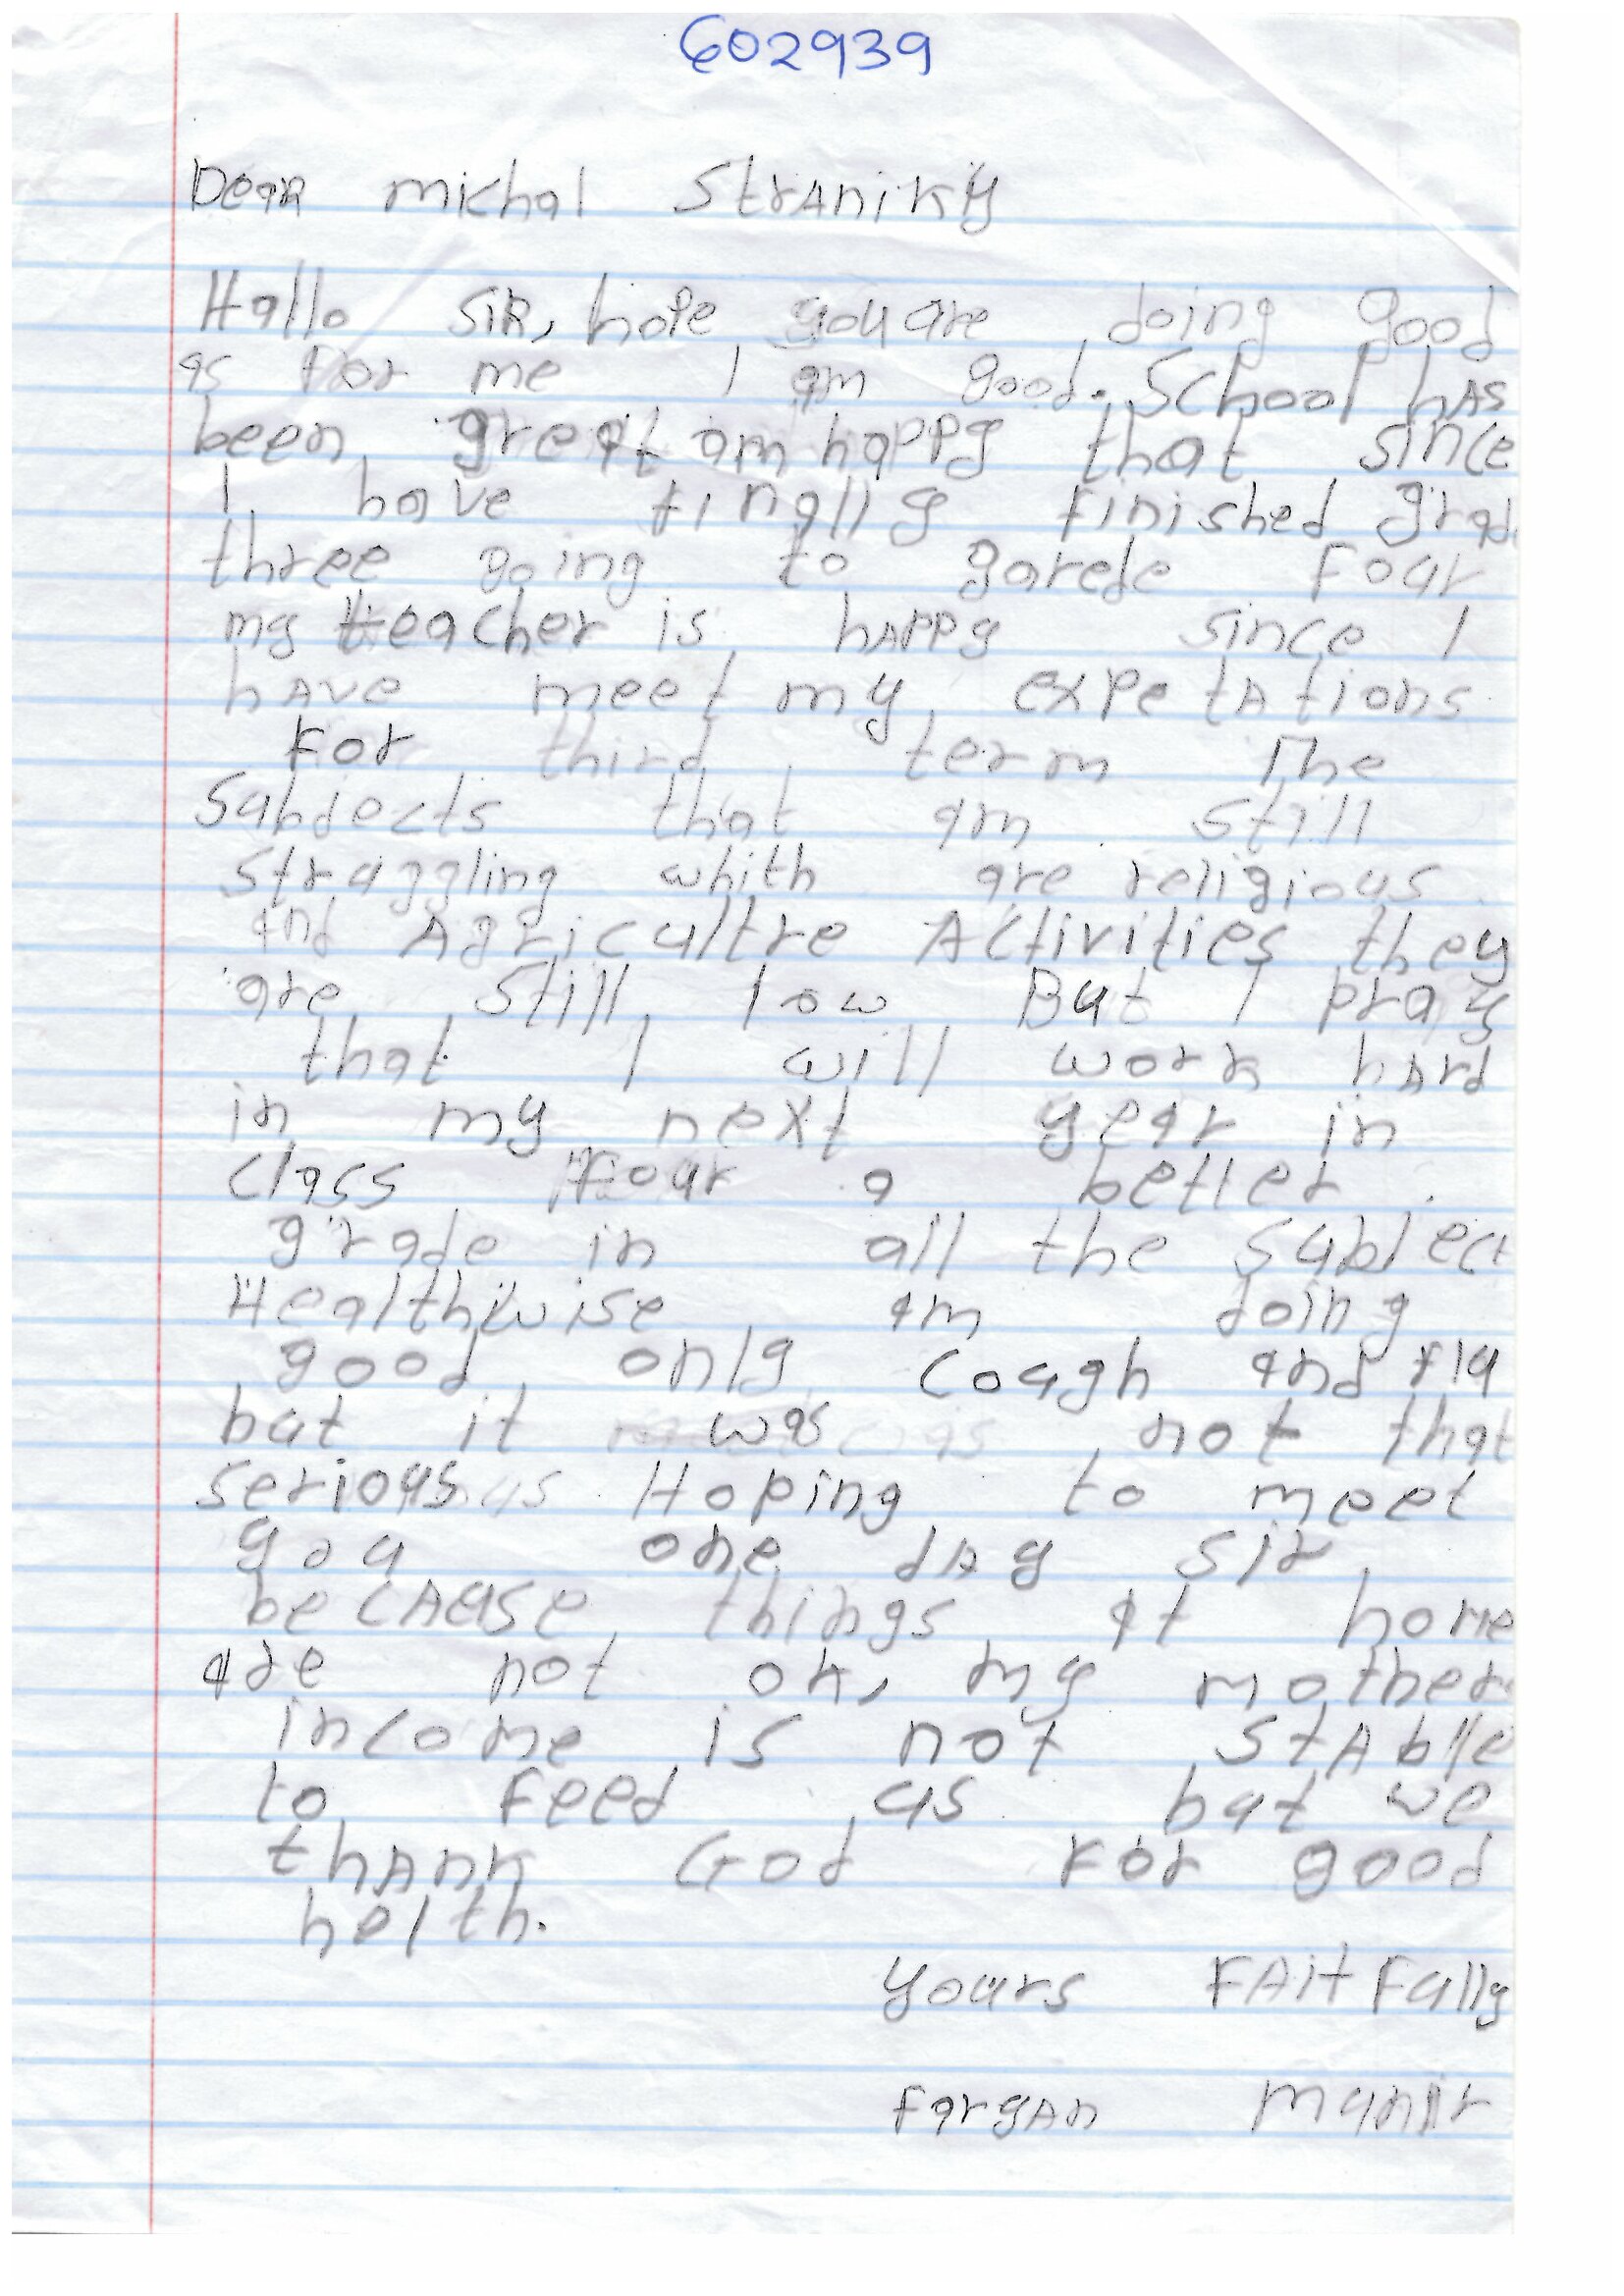 602939
Dear michal StrAniky
Hallo SiR, hope you are doing good
as for me I am good. School hAs
been great am happy that since
I have finally finished grade
three going to garede four
my teacher is hAppy since I
hAve meet my expetAtions
For third term The
Subjects that am still
struggling whith are religious
and Agricultre Activities they
are still low But I pray
that I will work hArd
in my next year in
class four a better
grade in all the Subject
Healthwise am doing
good only cough and flu
but it was not that
serious Hoping to meet
you one dAy sir
becAuse things at home
are not ok, my mother
income is not stAblle
to Feed us but we
thAnk God For good
helth.
yours FAitFully
FargAn Munir